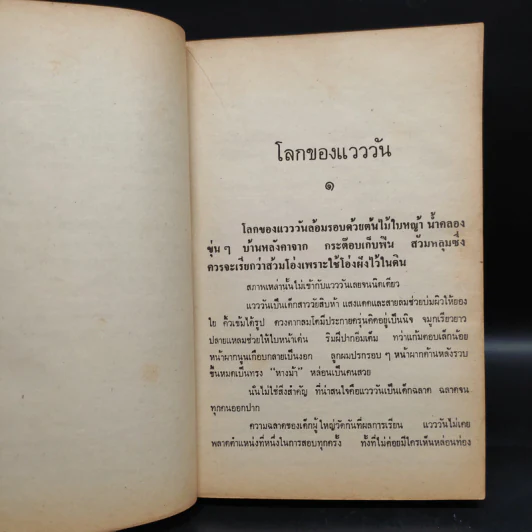 โลกของแวววัน
๑
โลกของแวววันล้อมรอบด้วยต้นไม้ใบหญ้า น้ำคลอง
ขุ่น ๆ บ้านหลังคาจาก กระต๊อบเก็บฟืน ส้วมหลุมซึ่ง
ควรจะเรียกว่าส้วมโอ่งเพราะใช้โอ่งฝังไว้ในดิน
สภาพเหล่านั้นไม่เข้ากับแวววันเลยจนนิดเดียว
แวววันเป็นเด็กสาววัยสิบห้า แสงแดดและสายลมช่วยบ่มผิวให้ยอง
ใย คิ้วเข้มได้รูป ดวงตากลมโตมีประกายครุ่นคิดอยู่เป็นนิจ จมูกเรียวยาว
ปลายแหลมช่วยให้ใบหน้าเด่น ริมฝีปากอิ่มเต็ม ทว่าแก้มตอบเล็กน้อย
หน้าผากนูนเกือบกลายเป็นงอก ลูกผมปรกรอบ ๆ หน้าผากด้านหลังรวบ
ขึ้นหมดเป็นทรง “หางม้า” หล่อนเป็นคนสวย
นั่นไม่ใช่สิ่งสำคัญ ที่น่าสนใจคือแวววันเป็นเด็กฉลาด ฉลาดจน
ทุกคนออกปาก
ความฉลาดของเด็กผู้ใหญ่วัดกันที่ผลการเรียน แวววันไม่เคย
พลาดตำแหน่งที่หนึ่งในการสอบทุกครั้ง ทั้งที่ไม่ค่อยมีใครเห็นหล่อนท่อง